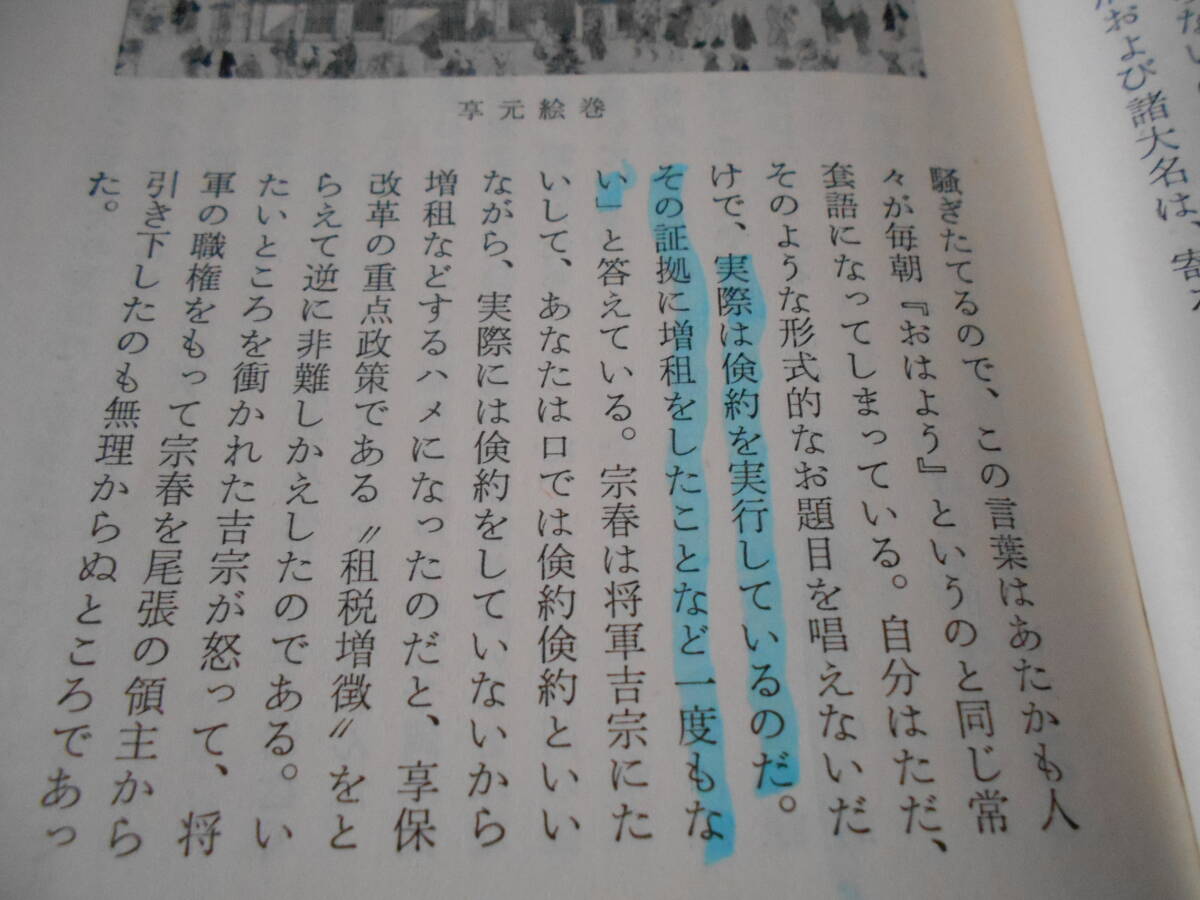 だい
形および諸大名は、寄
享元絵巻
騒ぎたてるので、この言葉はあたかも人
々が毎朝『おはよう』というのと同じ常
套語になってしまっている。自分はただ、
そのような形式的なお題目を唱えないだ
けで、実際は倹約を実行しているのだ。
その証拠に増租をしたことなど一度もな
い」と答えている。宗春は将軍吉宗にた
いして、あなたは口では倹約倹約といい
ながら、実際には倹約をしていないから
増租などするハメになったのだと、享保
改革の重点政策である〝租税増徴〟をと
らえて逆に非難しかえしたのである。い
たいところを衝かれた吉宗が怒って、将
軍の職権をもって宗春を尾張の領主から
引き下したのも無理からぬところであっ
た。